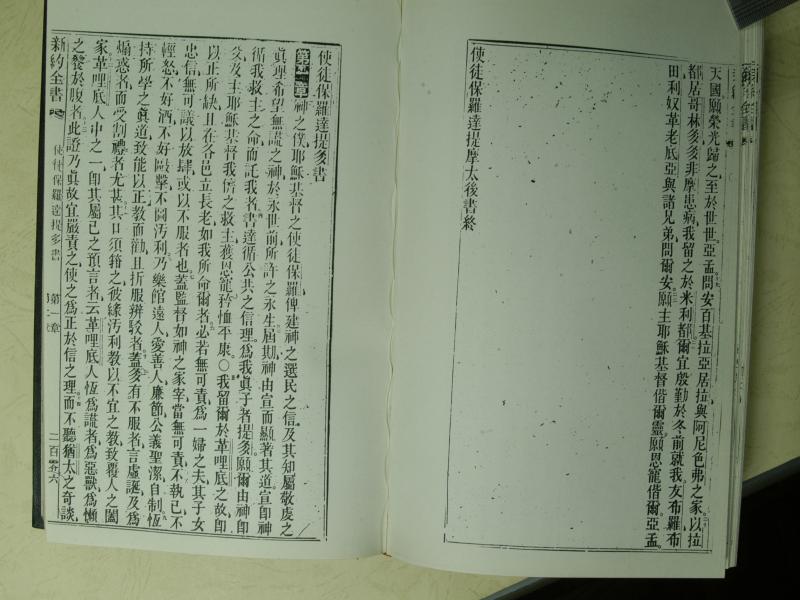 天國願榮光歸之至於世世亞孟問安百基拉亞居拉與阿尼色弗之家以拉
都居哥林多多非摩患病我留之於米利都爾宜殷勤於冬前就我友布羅布
田利奴革老底亞與諸兄弟問爾安願主耶穌基督偕爾靈願恩寵偕爾亞孟
使徒保羅達提摩太後書終
使徒保羅達提多書
第一章神之僕耶穌基督之使徒保羅俾建神之選民之信及其知屬敬虔之
眞理希望無謊之神於永世前所許之永生屆其期神由宣而顯著其道宣即神
循我救主之命而託我者書達循公共之信理爲我眞子者提多願爾由神即
父及主耶穌基督我儕之救主獲恩寵矜恤平康○我留爾於革哩底之故即
以正所缺且在各邑立長老如我所命爾者必若無可責爲一婦之夫其子女
忠信無可議以放肆或以不服者也蓋監督如神之家宰當無可責不執己不
輕怒不好酒不好毆擊不圖汚利乃樂館遠人愛善人廉節公義聖潔自制恆
持所學之眞道致能以正教而勸且折服辨駁者蓋多有不服者言虛誕及爲
煽惑者而受割禮者尤甚其口須箝之彼緣汚利教以不宜之教致覆人之闔
家革哩底人中之一即其屬己之預言者云革哩底人恆爲謊者爲惡獸爲懶
之餮於腹者此證乃眞故宜嚴責之使之爲正於信之理而不聽猶太之奇談
新約全書
使徒保羅達提多書
第一章